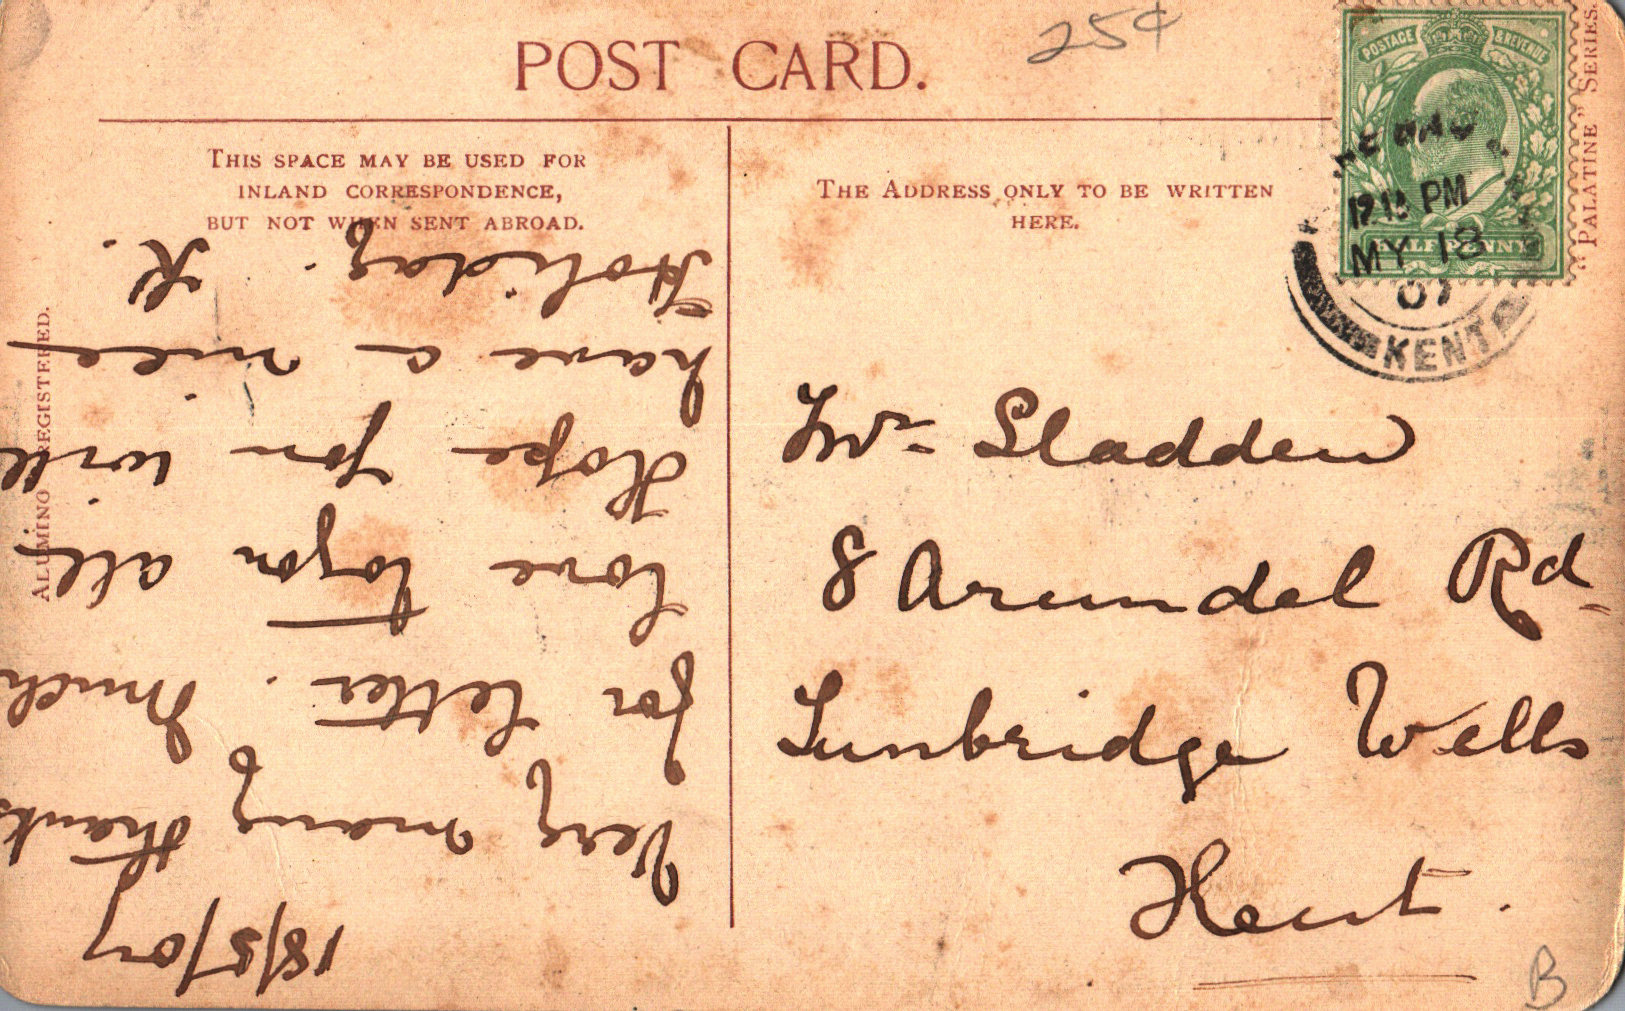 POST CARD.
25¢
POSTAGE & REVENUE
HALFPENNY
12 15 PM
MY 18
07
KENT
"PALATINE" SERIES.
THIS SPACE MAY BE USED FOR
INLAND CORRESPONDENCE,
BUT NOT WHEN SENT ABROAD.
THE ADDRESS ONLY TO BE WRITTEN
HERE.
ALUMINO REGISTERED.
18/5/07
Very many thanks
for letter. Much
love to you all
Hope you will
have a nice
Holiday. K.
Sladden
8 Arundel Rd
Tunbridge Wells
Kent.
B